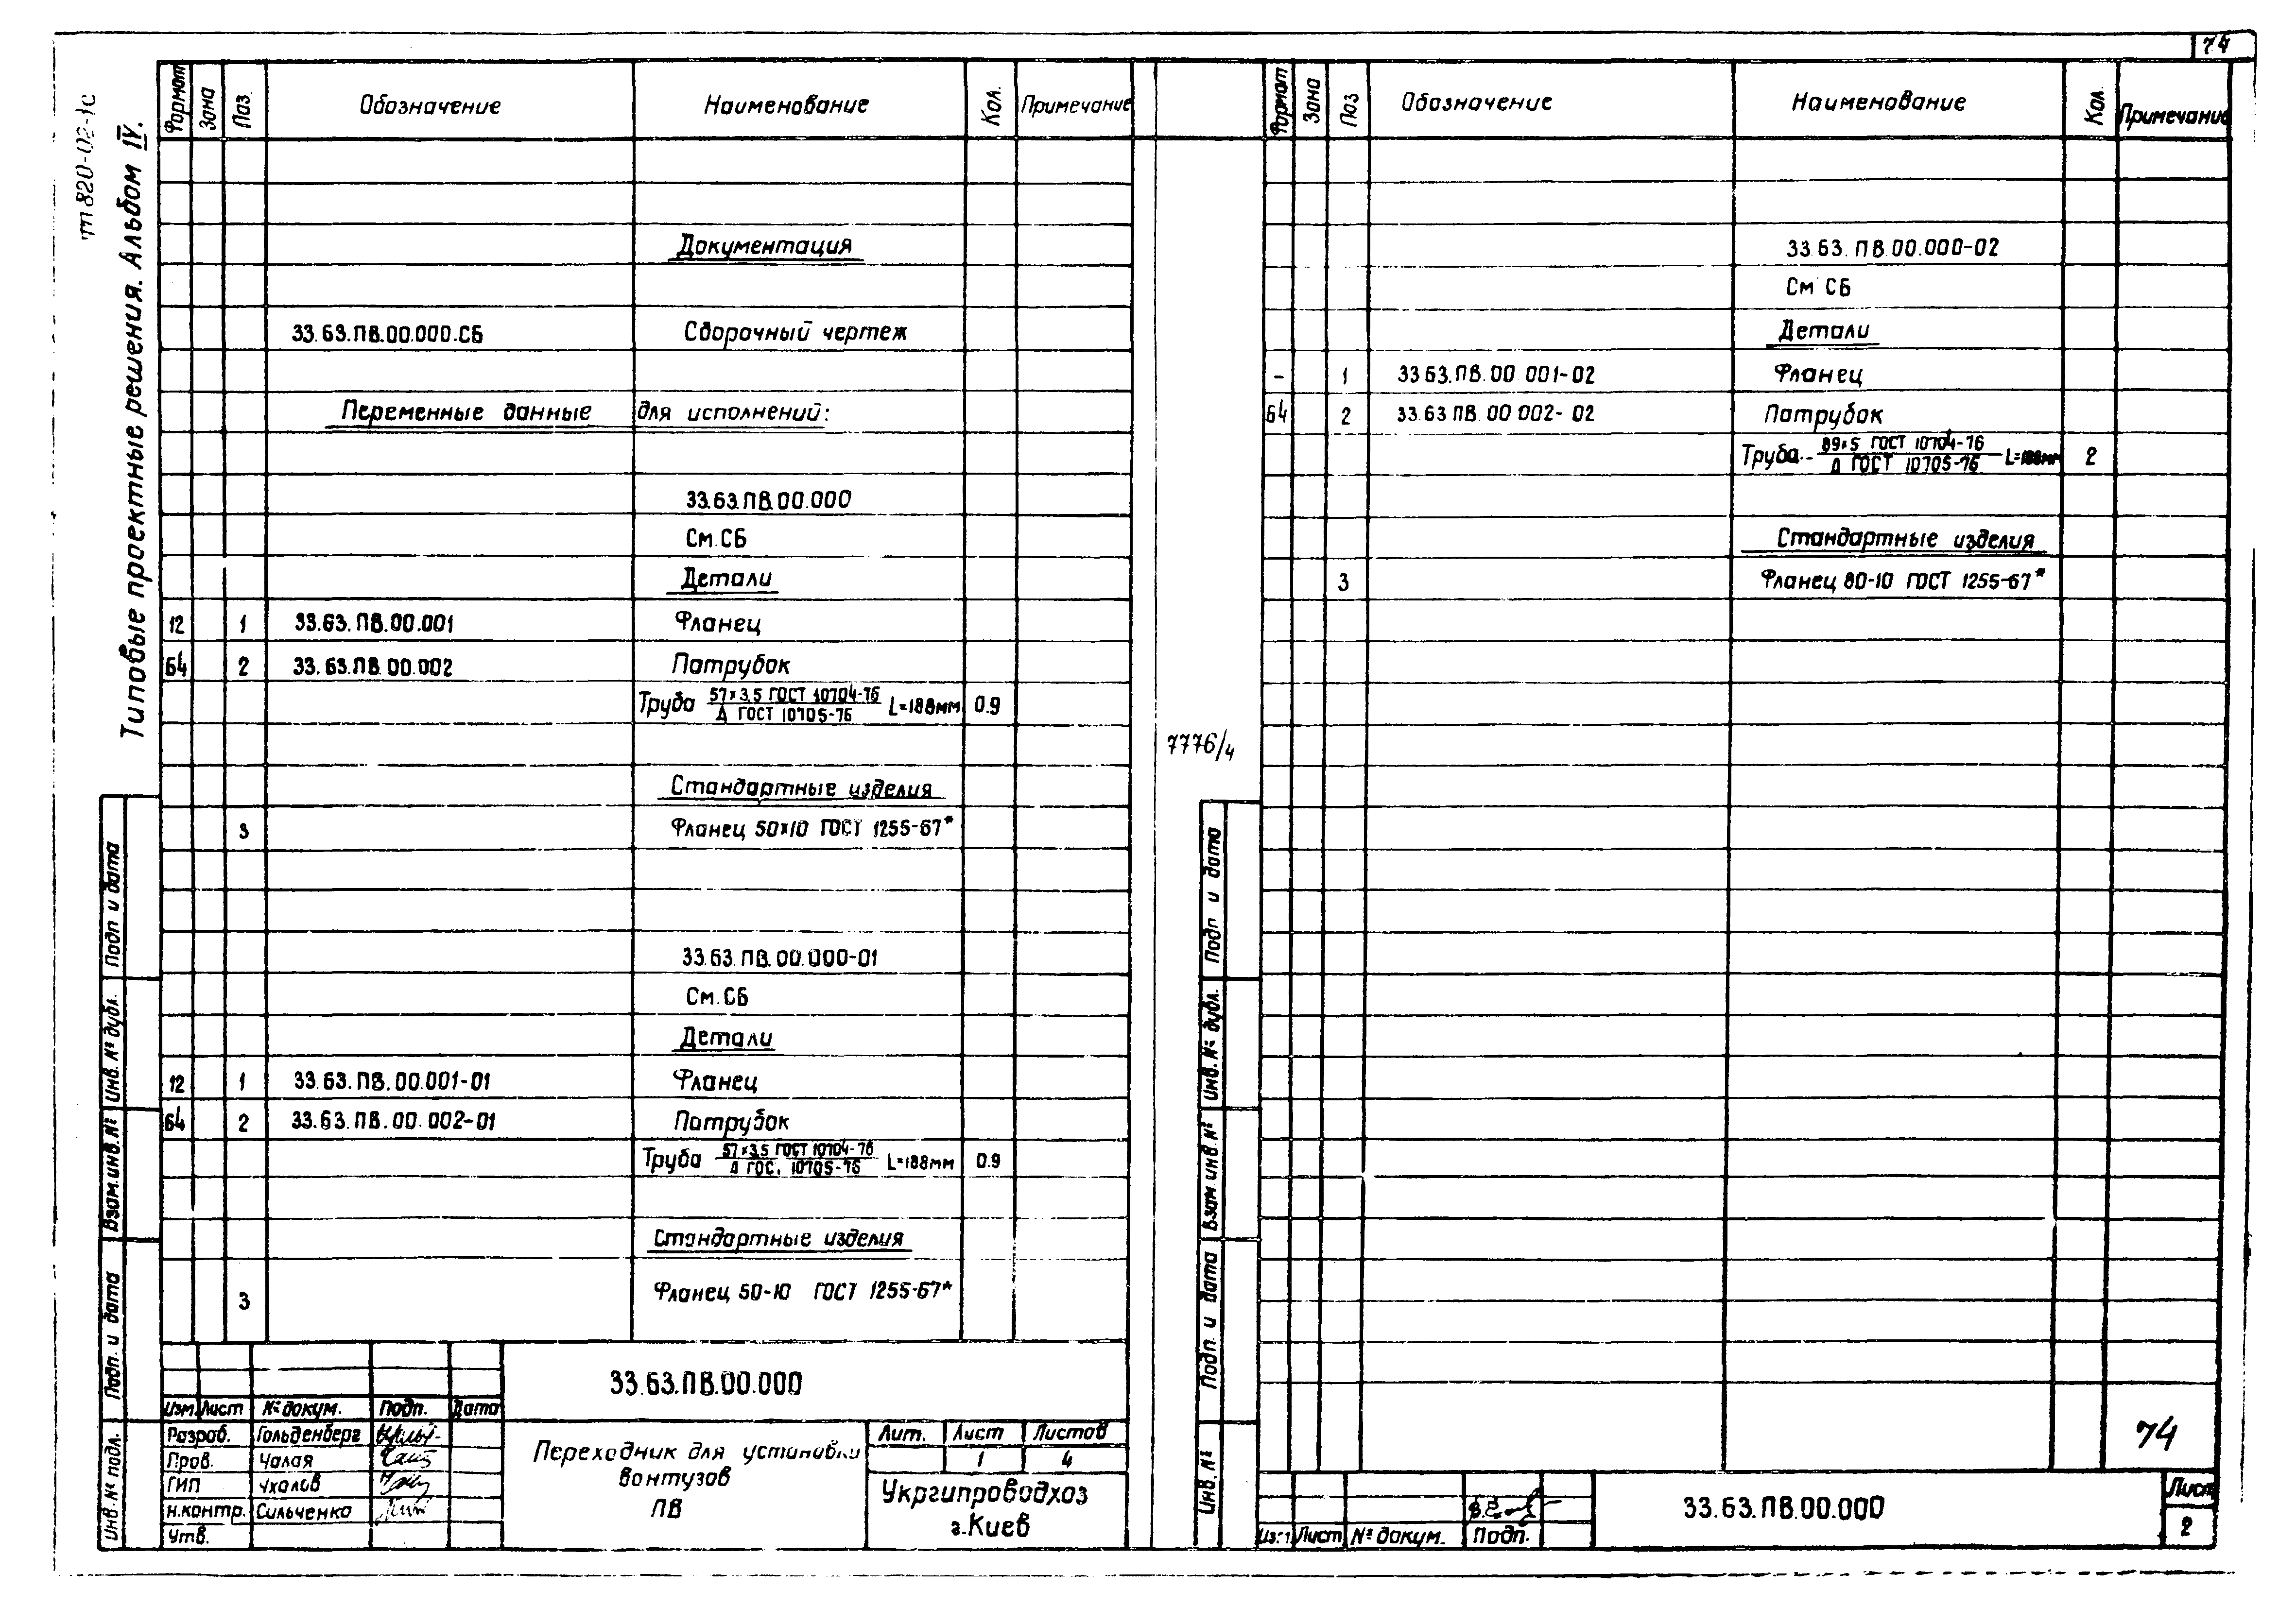 74
Типовые проектные решения. Альбом IV.
тп820-02-1с
Формат Зона Поз. Обозначение Наименование Кол. Примечание
Документация
33.63.ПВ.00.000.СБ Сборочный чертеж
Переменные данные для исполнений:
33.63.ПВ.00.000
См.СБ
Детали
12 1 33.63.ПВ.00.001 Фланец
Б4 2 33.63.ПВ.00.002 Патрубок
Труба 57×3,5 ГОСТ 10704-76 / Д ГОСТ 10705-76 L=188мм 0.9
Стандартные изделия
3 Фланец 50×10 ГОСТ 1255-67*
33.63.ПВ.00.000-01
См.СБ
Детали
12 1 33.63.ПВ.00.001-01 Фланец
Б4 2 33.63.ПВ.00.002-01 Патрубок
Труба 57×3,5 ГОСТ 10704-76 / Д ГОС. 10705-76 L=188мм 0.9
Стандартные изделия
3 Фланец 50-10 ГОСТ 1255-67*
Подп и дата
Инв. № дубл.
Взам.инв.№
Подп. и дата
Инв. № подл.
33.63.ПВ.00.000
Изм. Лист № докум. Подп. Дата
Разраб. Гольденберг
Пров. Чалая
ГИП Ухалов
н.контр. Сильченко
Утв.
Переходник для установки
вантузов
ПВ
Лит. Лист Листов
1 4
Укргипроводхоз
г.Киев
7776/4
Формат Зона Поз Обозначение Наименование Кол. Примечание
33.63.ПВ.00.000-02
См СБ
Детали
- 1 33 63.ПВ.00 001-02 Фланец
Б4 2 33.63 ПВ 00 002-02 Патрубок
Труба 89×5 ГОСТ 10704-76 / Д ГОСТ 10705-76 L=188мм 2
Стандартные изделия
3 Фланец 80-10 ГОСТ 1255-67*
Подп и дата
Инв. № дубл.
Взам инв. №
Подп. и дата
Инв. №
74
Лист № докум. Подп.
33.63.ПВ.00.000
Лист
2